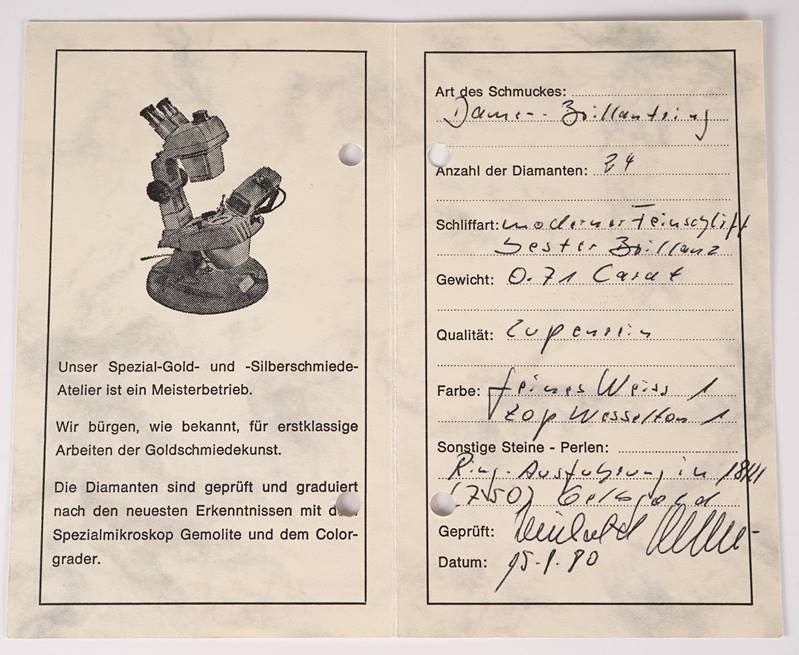 Unser Spezial-Gold- und -Silberschmiede-
Atelier ist ein Meisterbetrieb.
Wir bürgen, wie bekannt, für erstklassige
Arbeiten der Goldschmiedekunst.
Die Diamanten sind geprüft und graduiert
nach den neuesten Erkenntnissen mit dem
Spezialmikroskop Gemolite und dem Color-
grader.
Art des Schmuckes:
Damen-Brillantring
Anzahl der Diamanten: 24
Schliffart: moderner Feinschliff
bester Brillanz
Gewicht: 0.71 Carat
Qualität: Lupenrein
Farbe: feines Weiss 1
Top Wesselton 1
Sonstige Steine - Perlen:
Ring-Ausführung in 18Kt
(750) Gelbgold
Geprüft:
Datum: